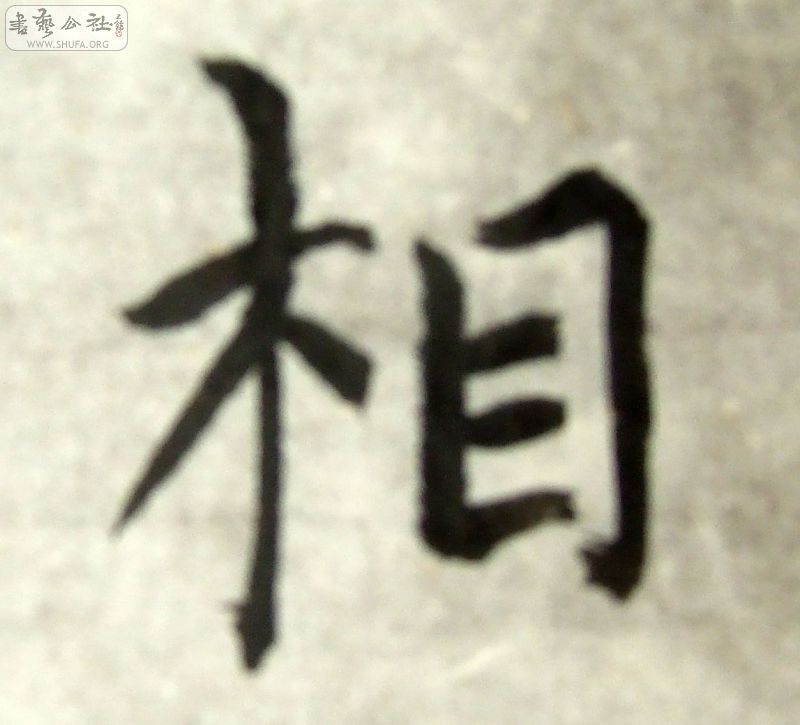 書藝公社
WWW.SHUFA.ORG
相